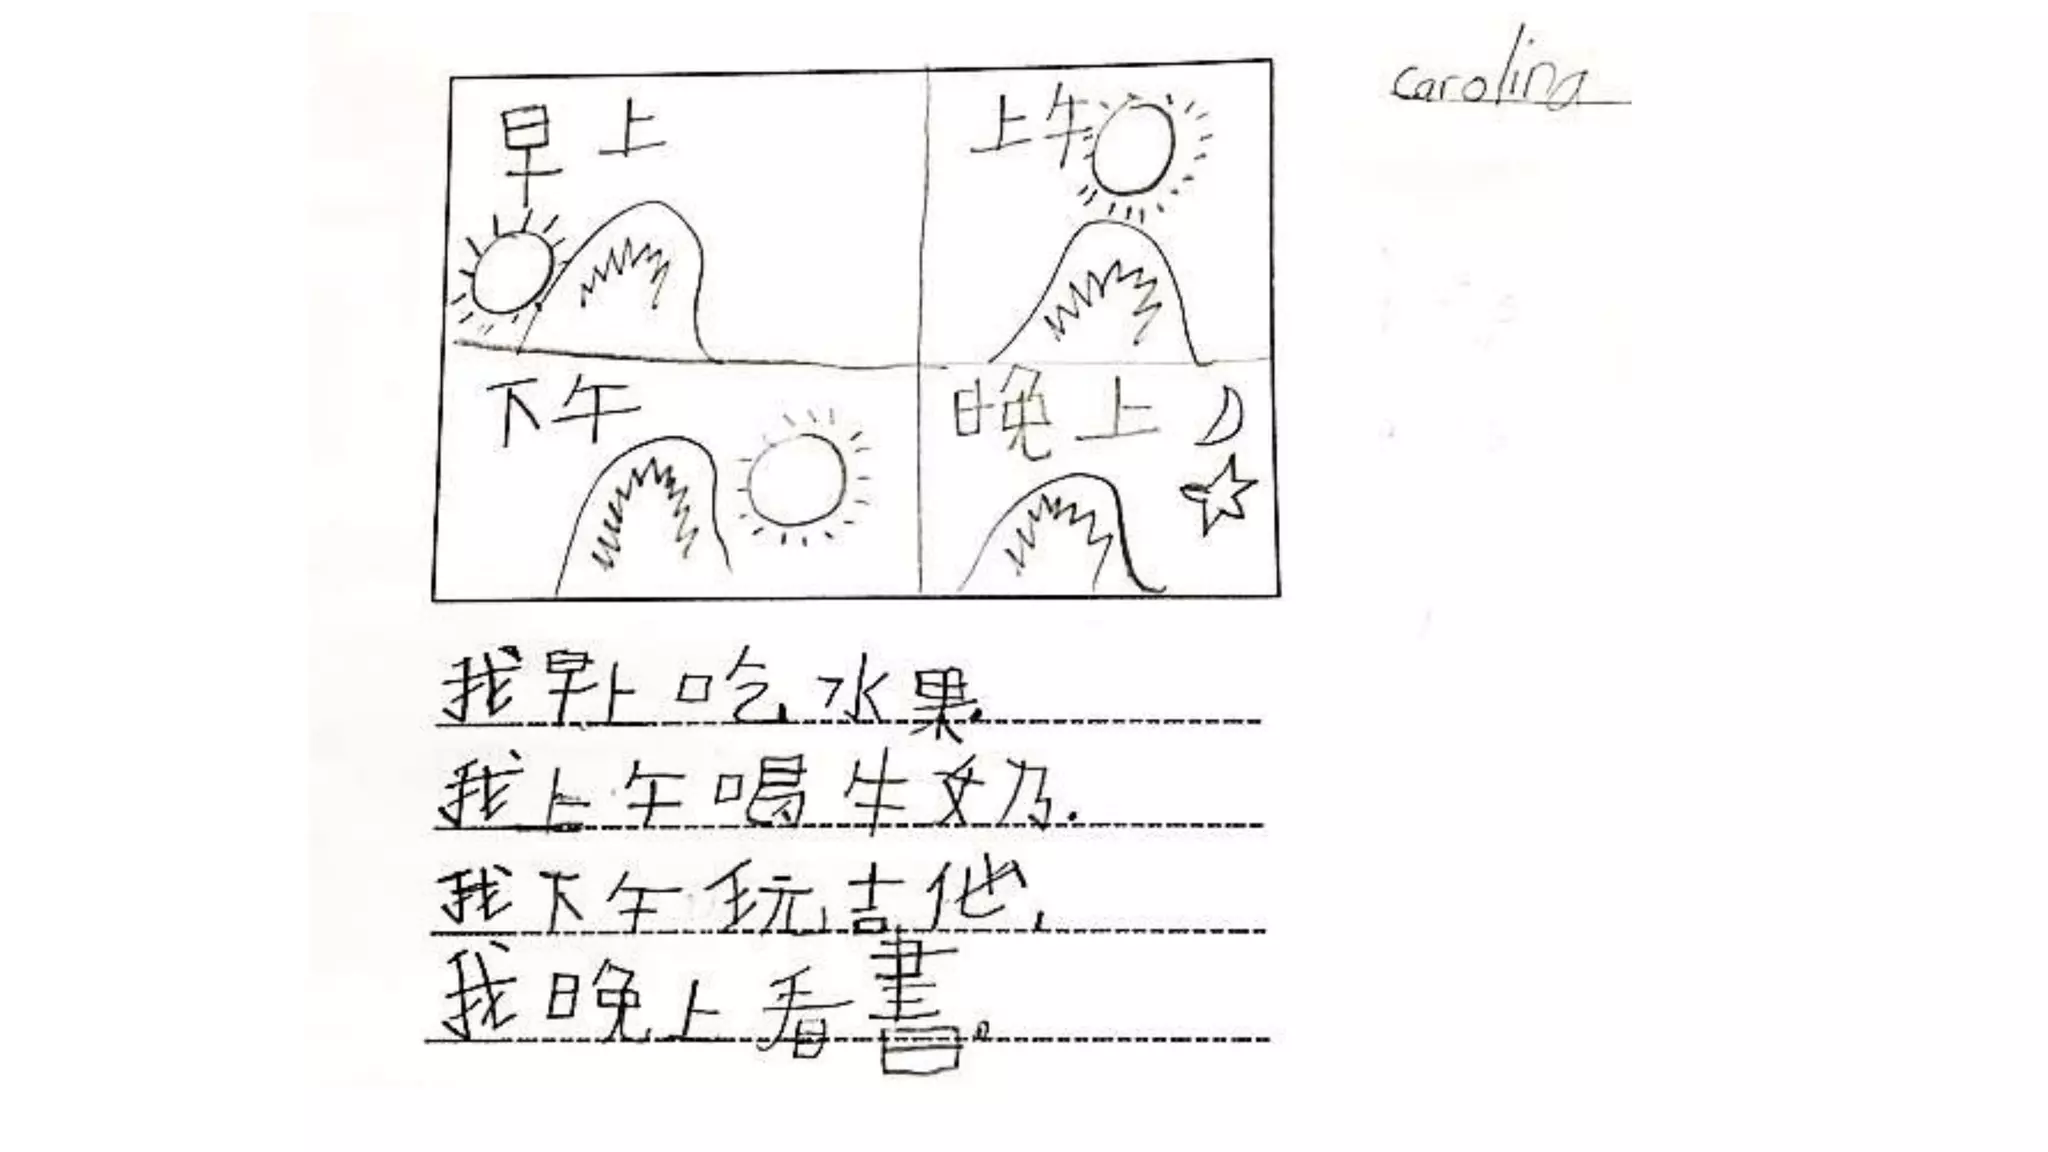 carolina
早上
上午
下午
晚上
我早上吃水果.
我上午喝牛奶.
我下午玩吉他,
我晚上看書。